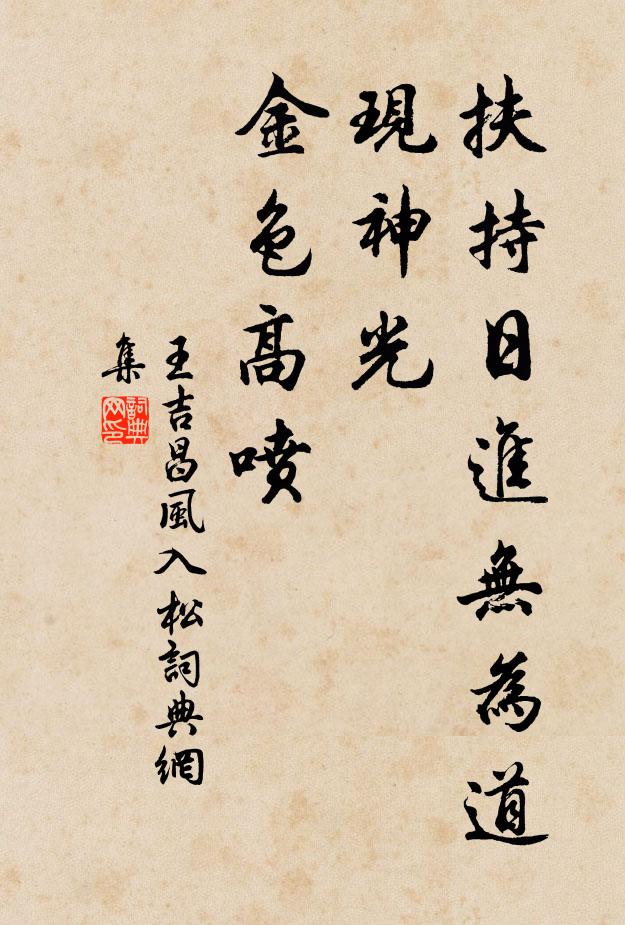 扶持日進無為道
現神光
金色高噴
王吉昌風入松詞典網
集
詞典
网印